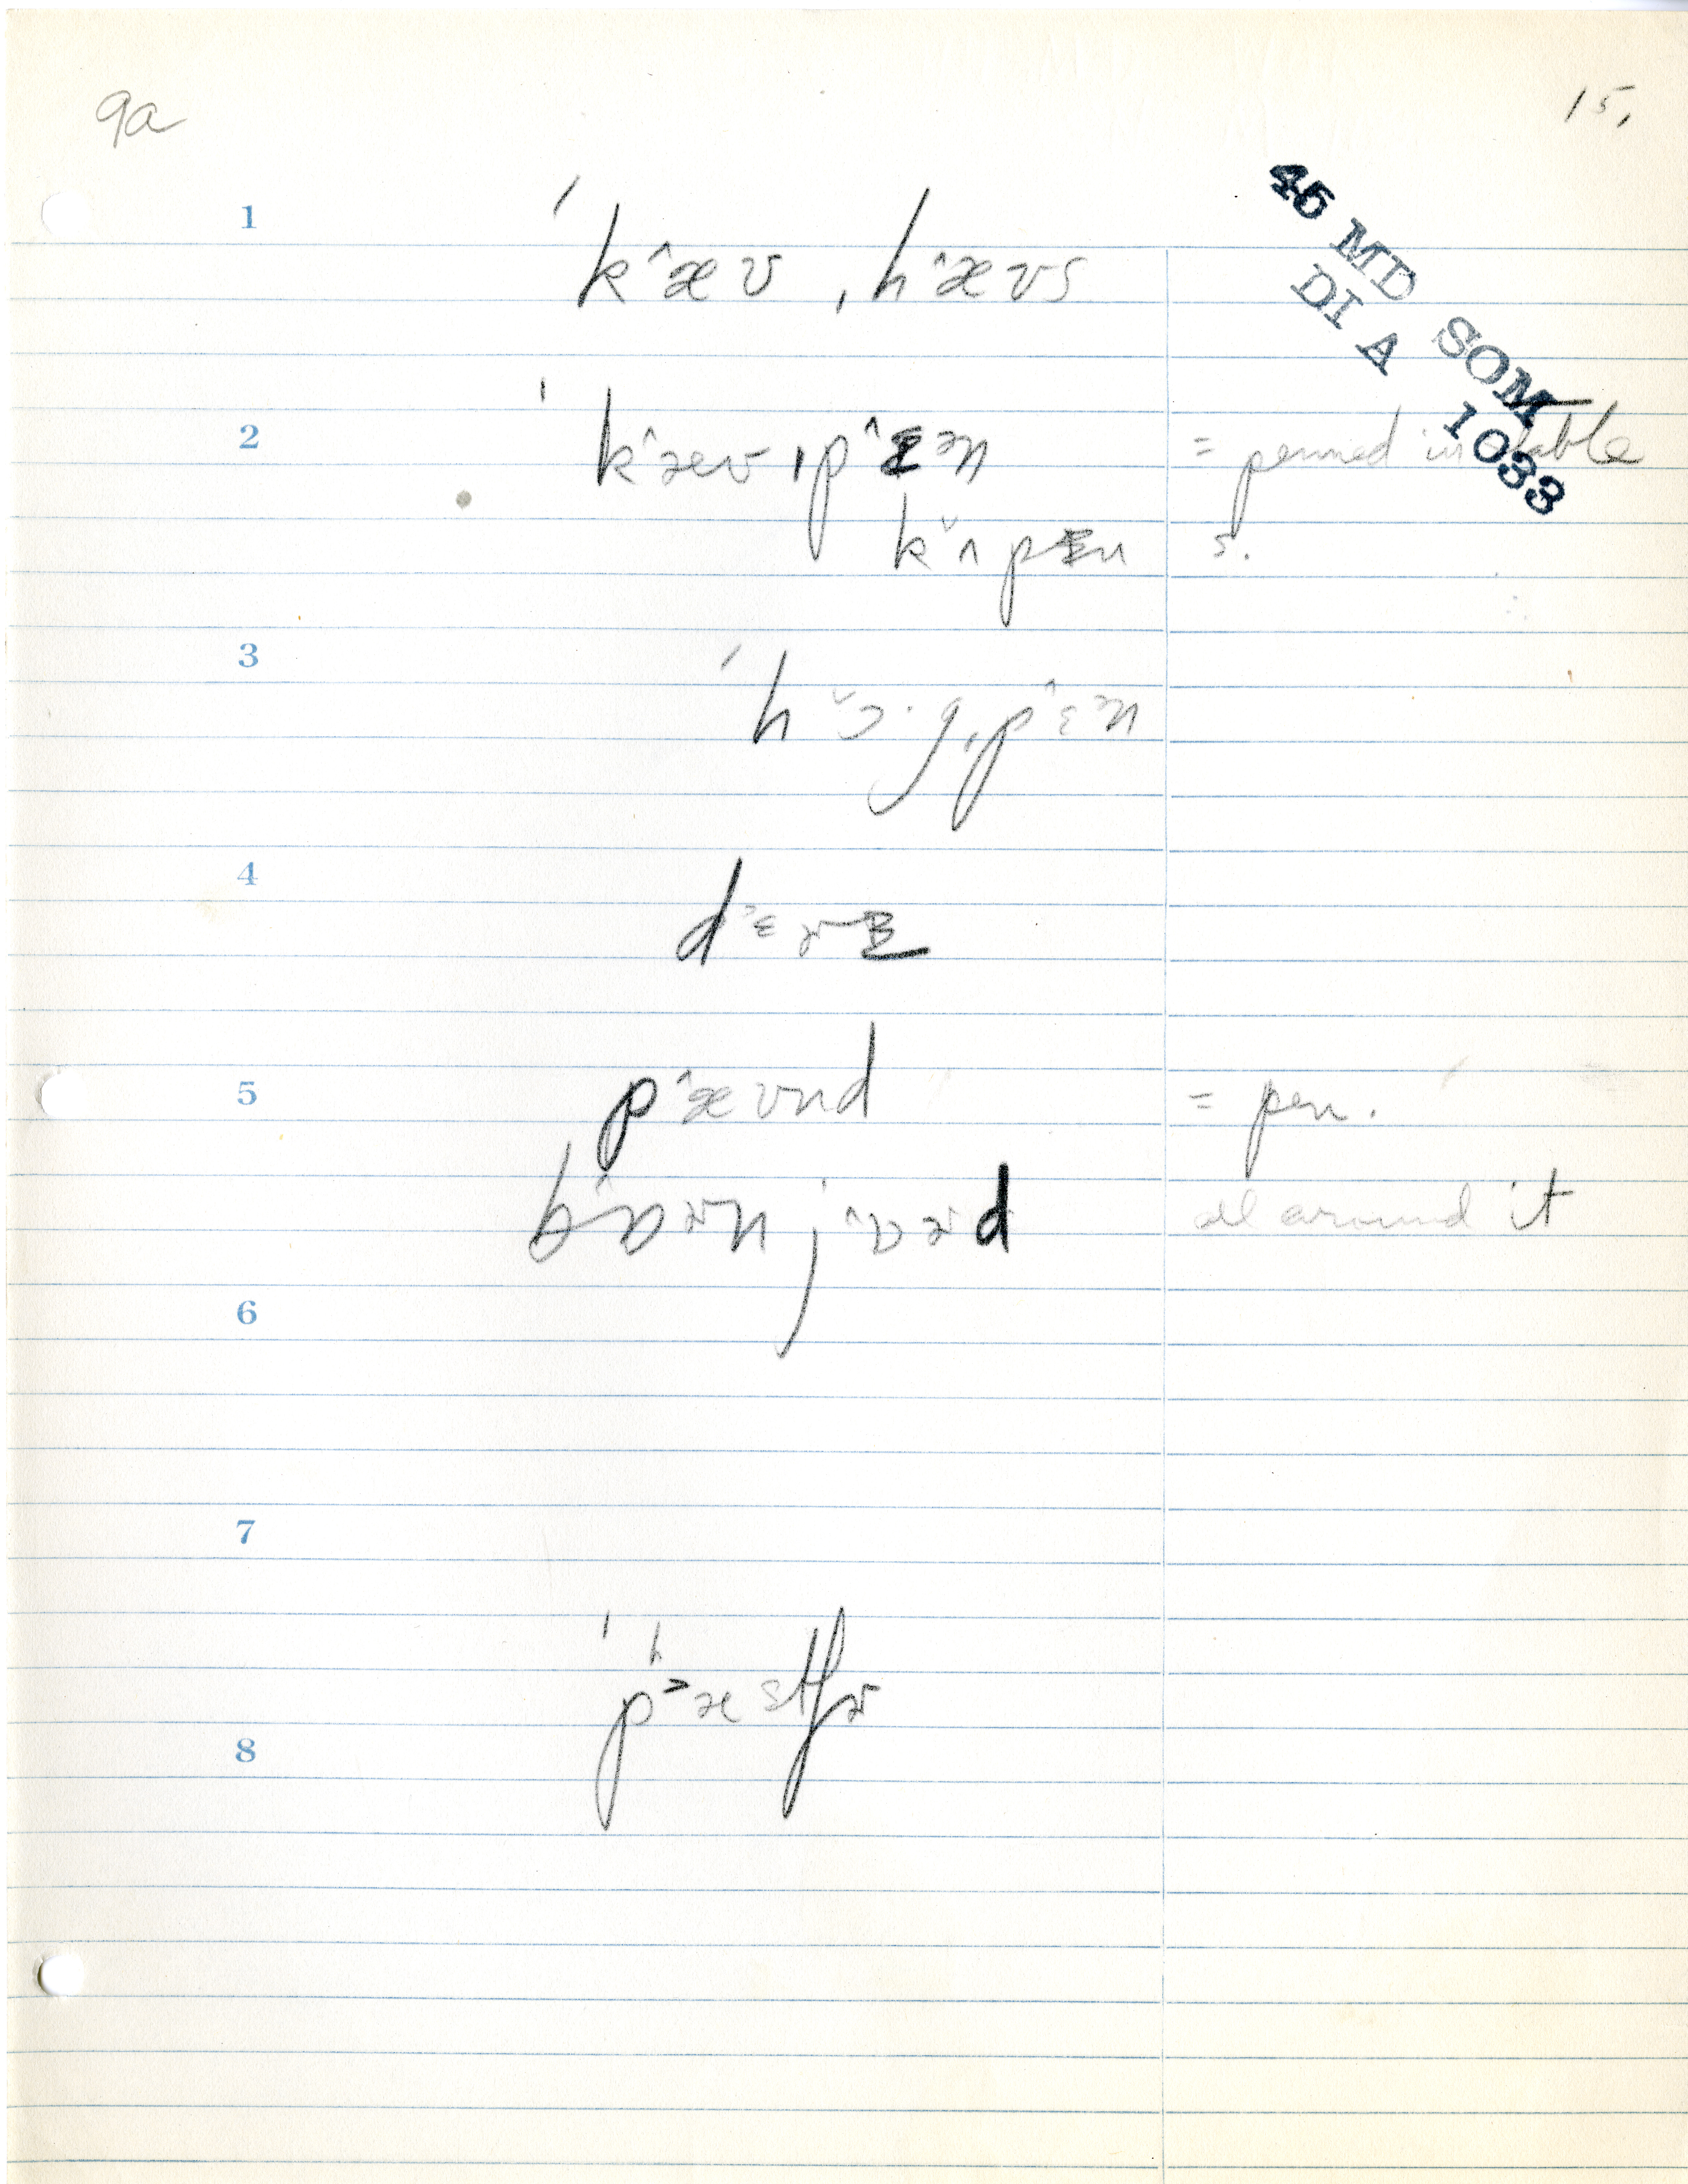 9a
15,
45 MD SOM
DI A 1033
1
ˈk^æʊ ˌh^æʊs
2
ˈk^æʊ ˌp^ɛən = penned in stable
kˇʌpɛn s.
3
ˈhˇɔ·g ˌp^ɛən
4
d˃ɛɚɪ
5
p^æʊnd = pen.
b^ɒɚn j^ɒɚd all around it
6
7
ˈpʰ˃æstʃɚ
8